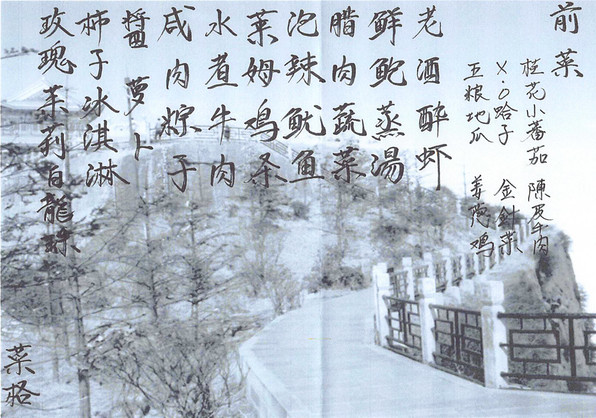 前菜
桂花小番茄 陳皮牛肉
X.O哈子 金針菜
五粮地瓜 姜葱鸡
老酒醉虾
鲜鲍蒸湯
腊肉蔬菜
泡辣鱿鱼
莱姆鸡条
水煮牛肉
咸肉粽子
醬萝卜
柿子冰淇淋
玫瑰茉莉白龍珠
菜格